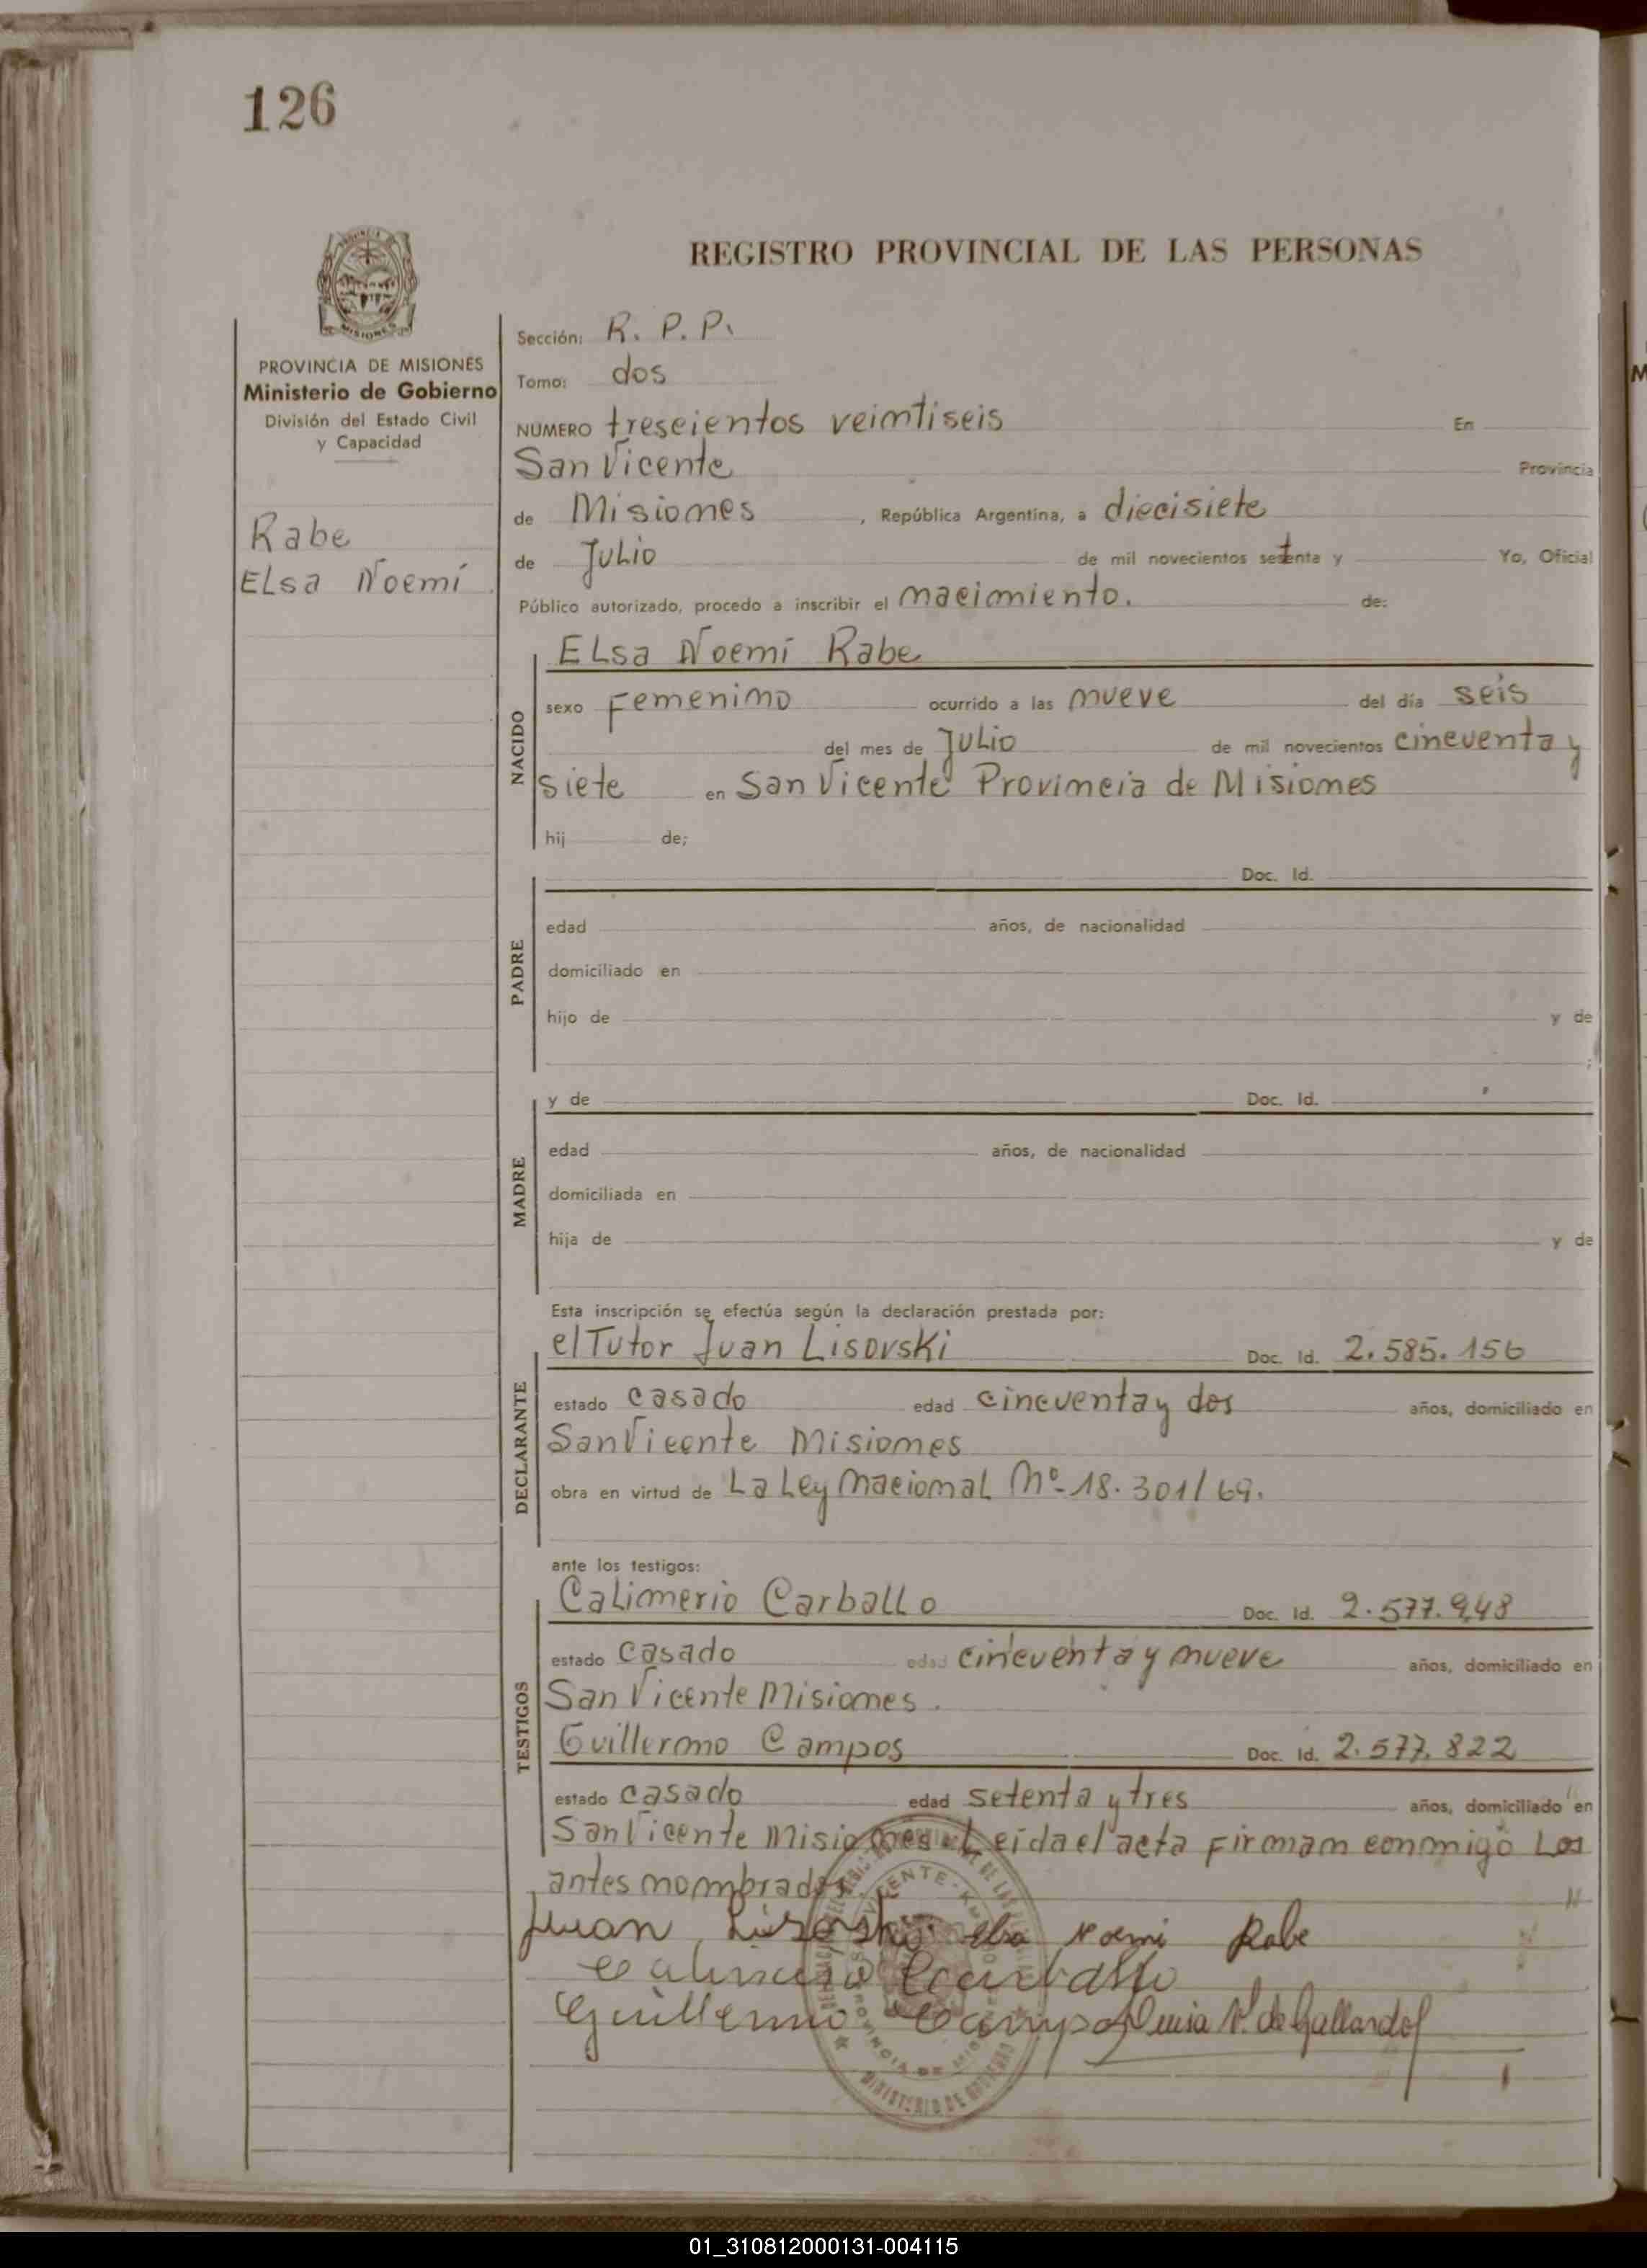 126
REGISTRO PROVINCIAL DE LAS PERSONAS
MISIONES
PROVINCIA DE MISIONES
Ministerio de Gobierno
División del Estado Civil
y Capacidad
Rabe
Elsa Noemí
Sección: R. P. P.
Tomo: dos
NUMERO trescientos veintiseis En
San Vicente Provincia
de Misiones, República Argentina, a diecisiete
de Julio de mil novecientos setenta y Yo, Oficial
Público autorizado, procedo a inscribir el nacimiento. de:
NACIDO
Elsa Noemí Rabe
sexo Femenino ocurrido a las nueve del día seis
del mes de Julio de mil novecientos cincuenta y
siete en San Vicente Provincia de Misiones
hij de;
PADRE
Doc. Id.
edad años, de nacionalidad
domiciliado en
hijo de y de
;
MADRE
y de Doc. Id.
edad años, de nacionalidad
domiciliada en
hija de y de
Esta inscripción se efectúa según la declaración prestada por:
DECLARANTE
el Tutor Juan Lisovski Doc. Id. 2.585.156
estado casado edad cincuenta y dos años, domiciliado en
San Vicente Misiones
obra en virtud de La Ley Nacional Nº 18.301/69.
ante los testigos:
TESTIGOS
Calimerio Carballo Doc. Id. 2.577.948
estado casado edad cincuenta y nueve años, domiciliado en
San Vicente Misiones.
Guillermo Campos Doc. Id. 2.577.822
estado casado edad setenta y tres años, domiciliado en
San Vicente Misiones Leída el acta firman conmigo Los
antes nombrados
Juan Lisovski Elsa Noemi Rabe
Calimerio Carballo
Guillermo Campos de Gallardo
MINISTERIO DE GOBIERNO
01_310812000131-004115